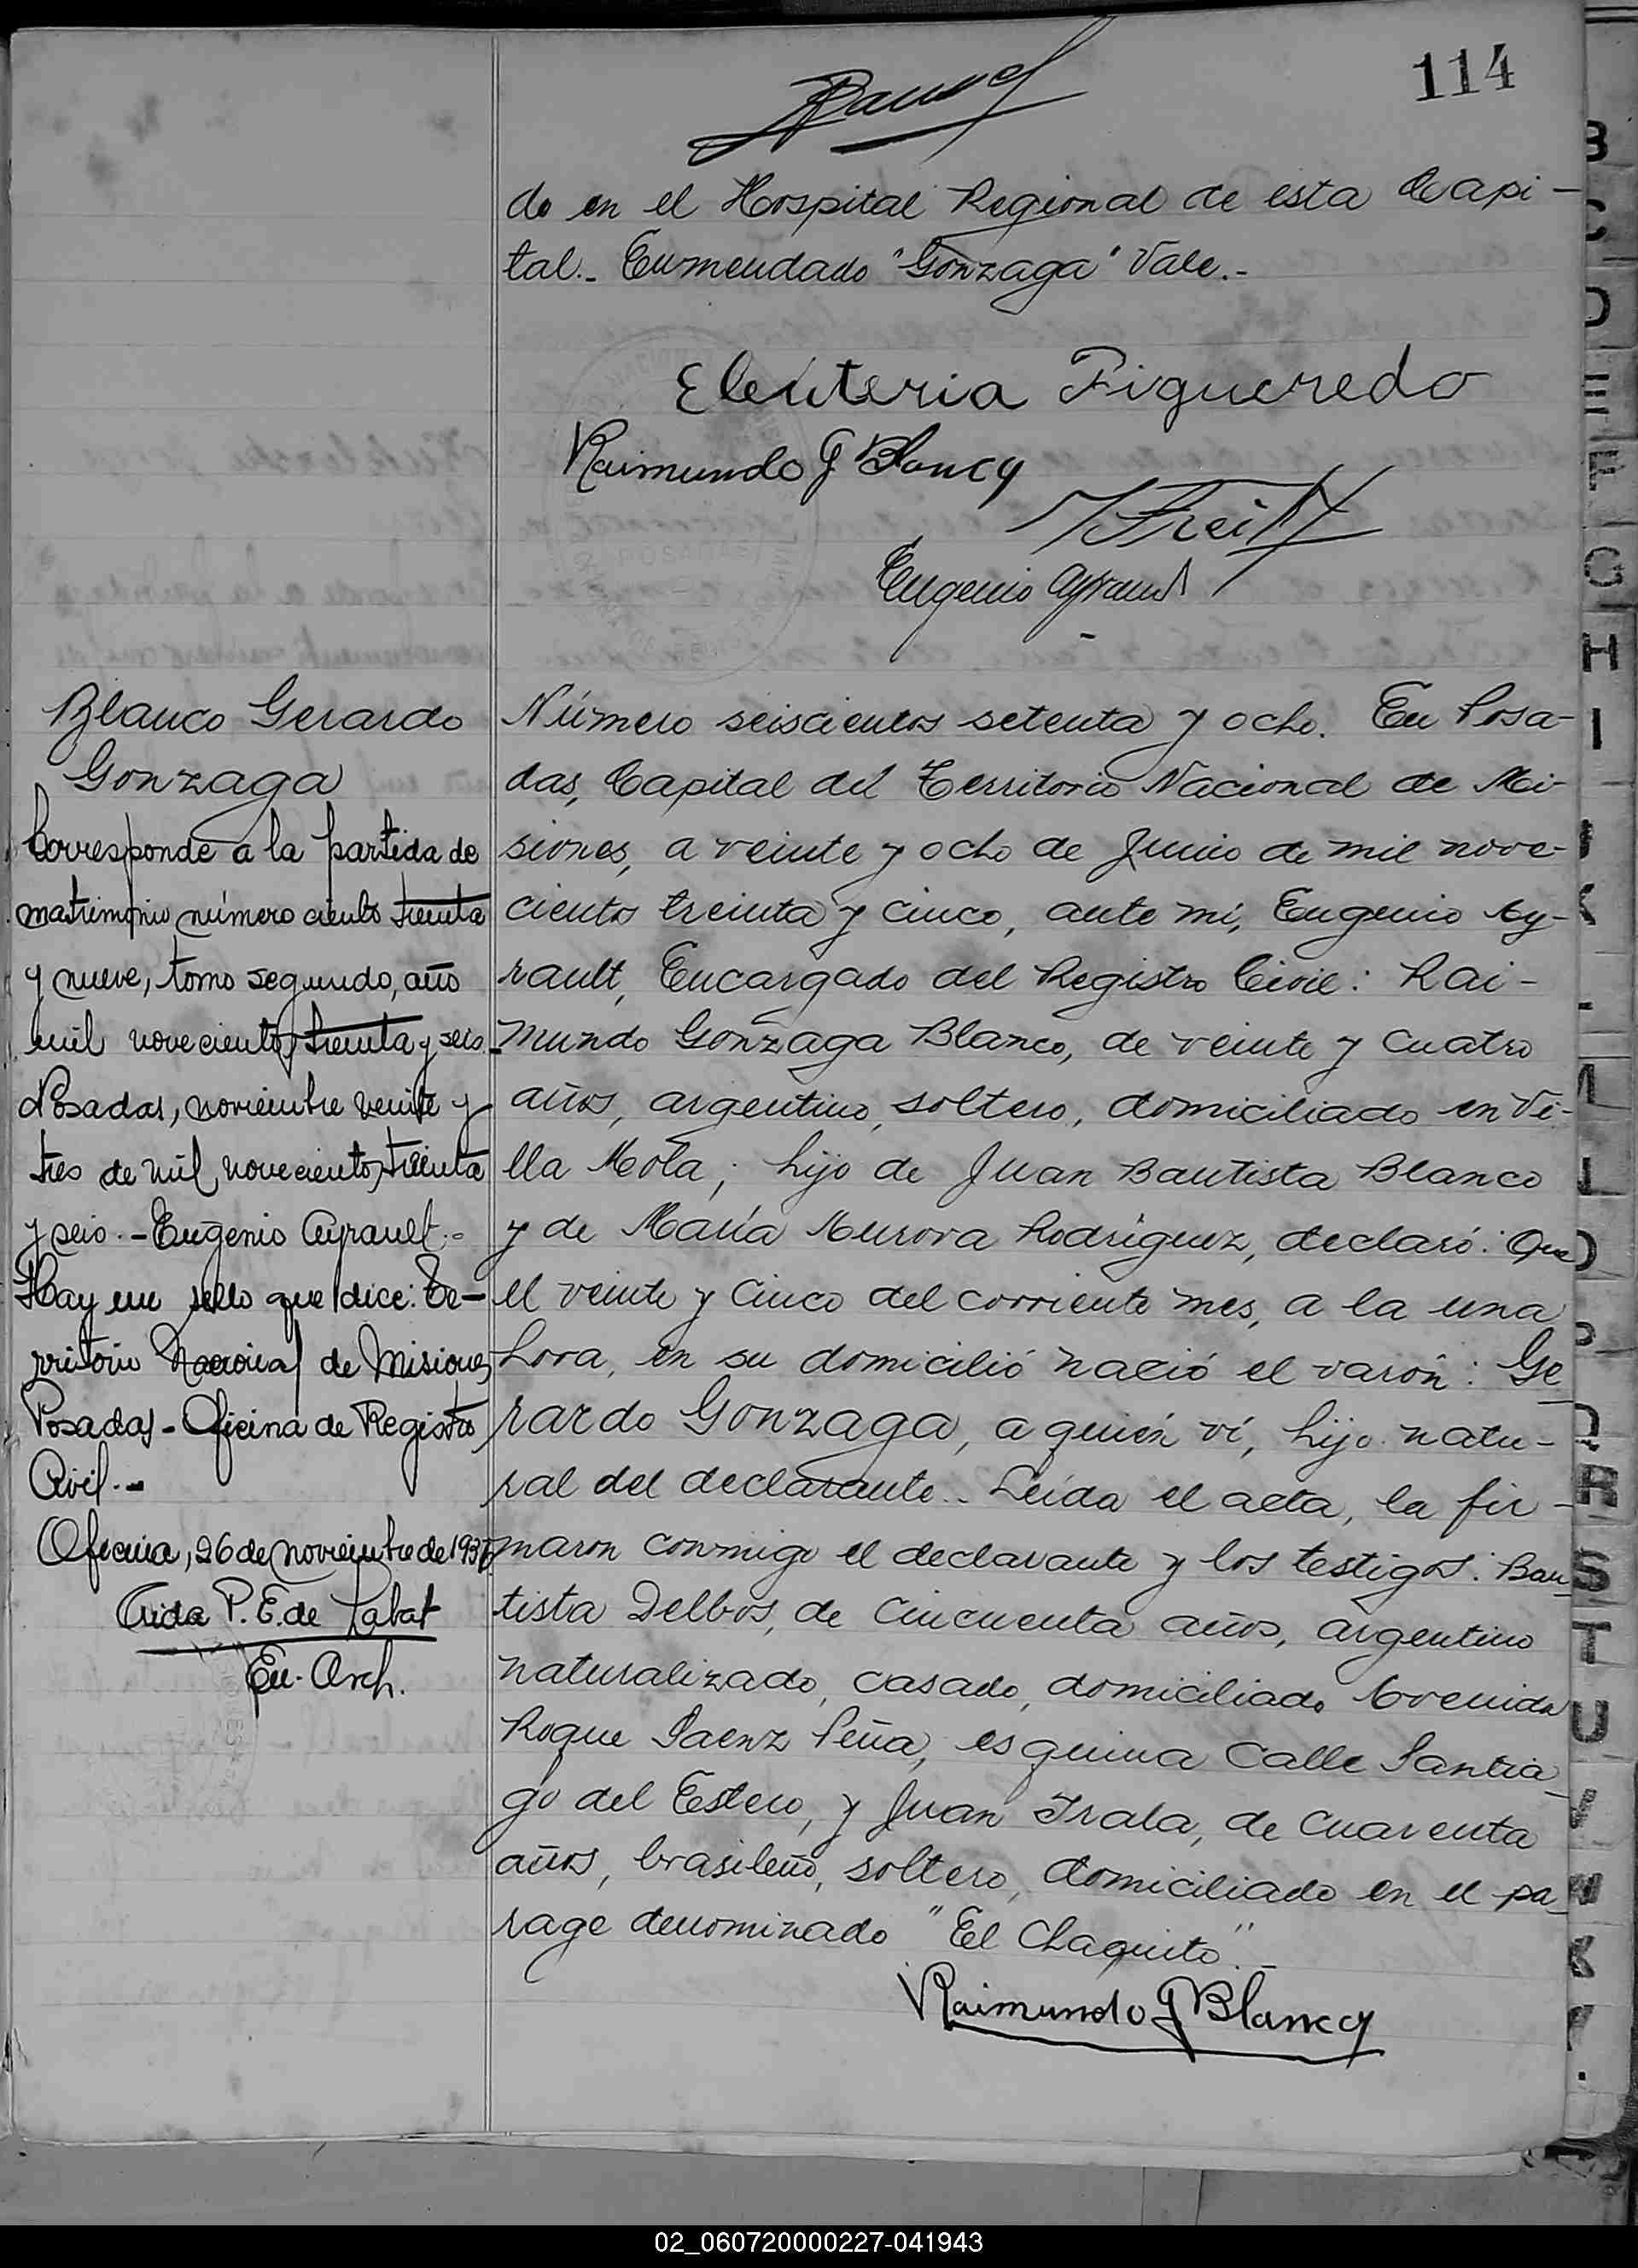 114
do en el Hospital Regional de esta Capi-
tal.- Enmendado "Gonzaga" Vale.-
Eleuteria Figueredo
Raimundo G Blanco
Eugenio Ayrault
Blanco Gerardo
Gonzaga
Corresponde a la partida de
matrimonio número ciento treinta
y nueve, tomo segundo, año
mil novecientos treinta y seis
Posadas, noviembre veinte y
tres de mil novecientos treinta
y seis.- Eugenio Ayrault.-
Hay un sello que dice: Te-
rritorio Nacional de Misiones
Posadas - Oficina de Registro
Civil.-
Oficina, 26 de noviembre de 1936
Aida P. E. de Labat
En. Arch.
Número seiscientos setenta y ocho. En Posa-
das, Capital del Territorio Nacional de Mi-
siones, a veinte y ocho de Junio de mil nove-
cientos treinta y cinco, ante mí, Eugenio Ay-
rault, Encargado del Registro Civil: Rai-
mundo Gonzaga Blanco, de veinte y cuatro
años, argentino, soltero, domiciliado en Vi-
lla Mola; hijo de Juan Bautista Blanco
y de María Aurora Rodríguez, declaró: Que
el veinte y cinco del corriente mes, a la una
hora, en su domicilió nació el varón: Ge-
rardo Gonzaga, a quién ví, hijo natu-
ral del declarante.- Leída el acta, la fir-
maron conmigo el declarante y los testigos: Bau-
tista Delbos, de cincuenta años, argentino
naturalizado, casado, domiciliado Avenida
Roque Saenz Peña, esquina Calle Santia-
go del Estero, y Juan Irala, de cuarenta
años, brasileño, soltero, domiciliado en el pa-
rage denominado "El Chaquito".-
Raimundo G Blanco
B
C
D
E
F
G
H
I
K
L
L
O
P
Q
R
S
T
U
V
W
X
Y
02_060720000227-041943